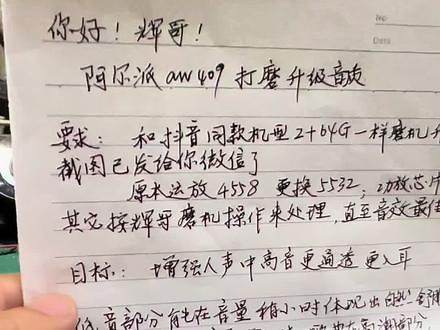 No
Date
你好！辉哥！
阿尔派aw409打磨升级音效
要求：和抖音同款机型2+64G一样磨机
截图已发给你微信了
原长运放4558 更换5532，功放芯片
其它按辉哥磨机操作来处理，直至音效最佳
目标：增强人声中高音更通透更入耳
低音部分能在音量稍小时体现出